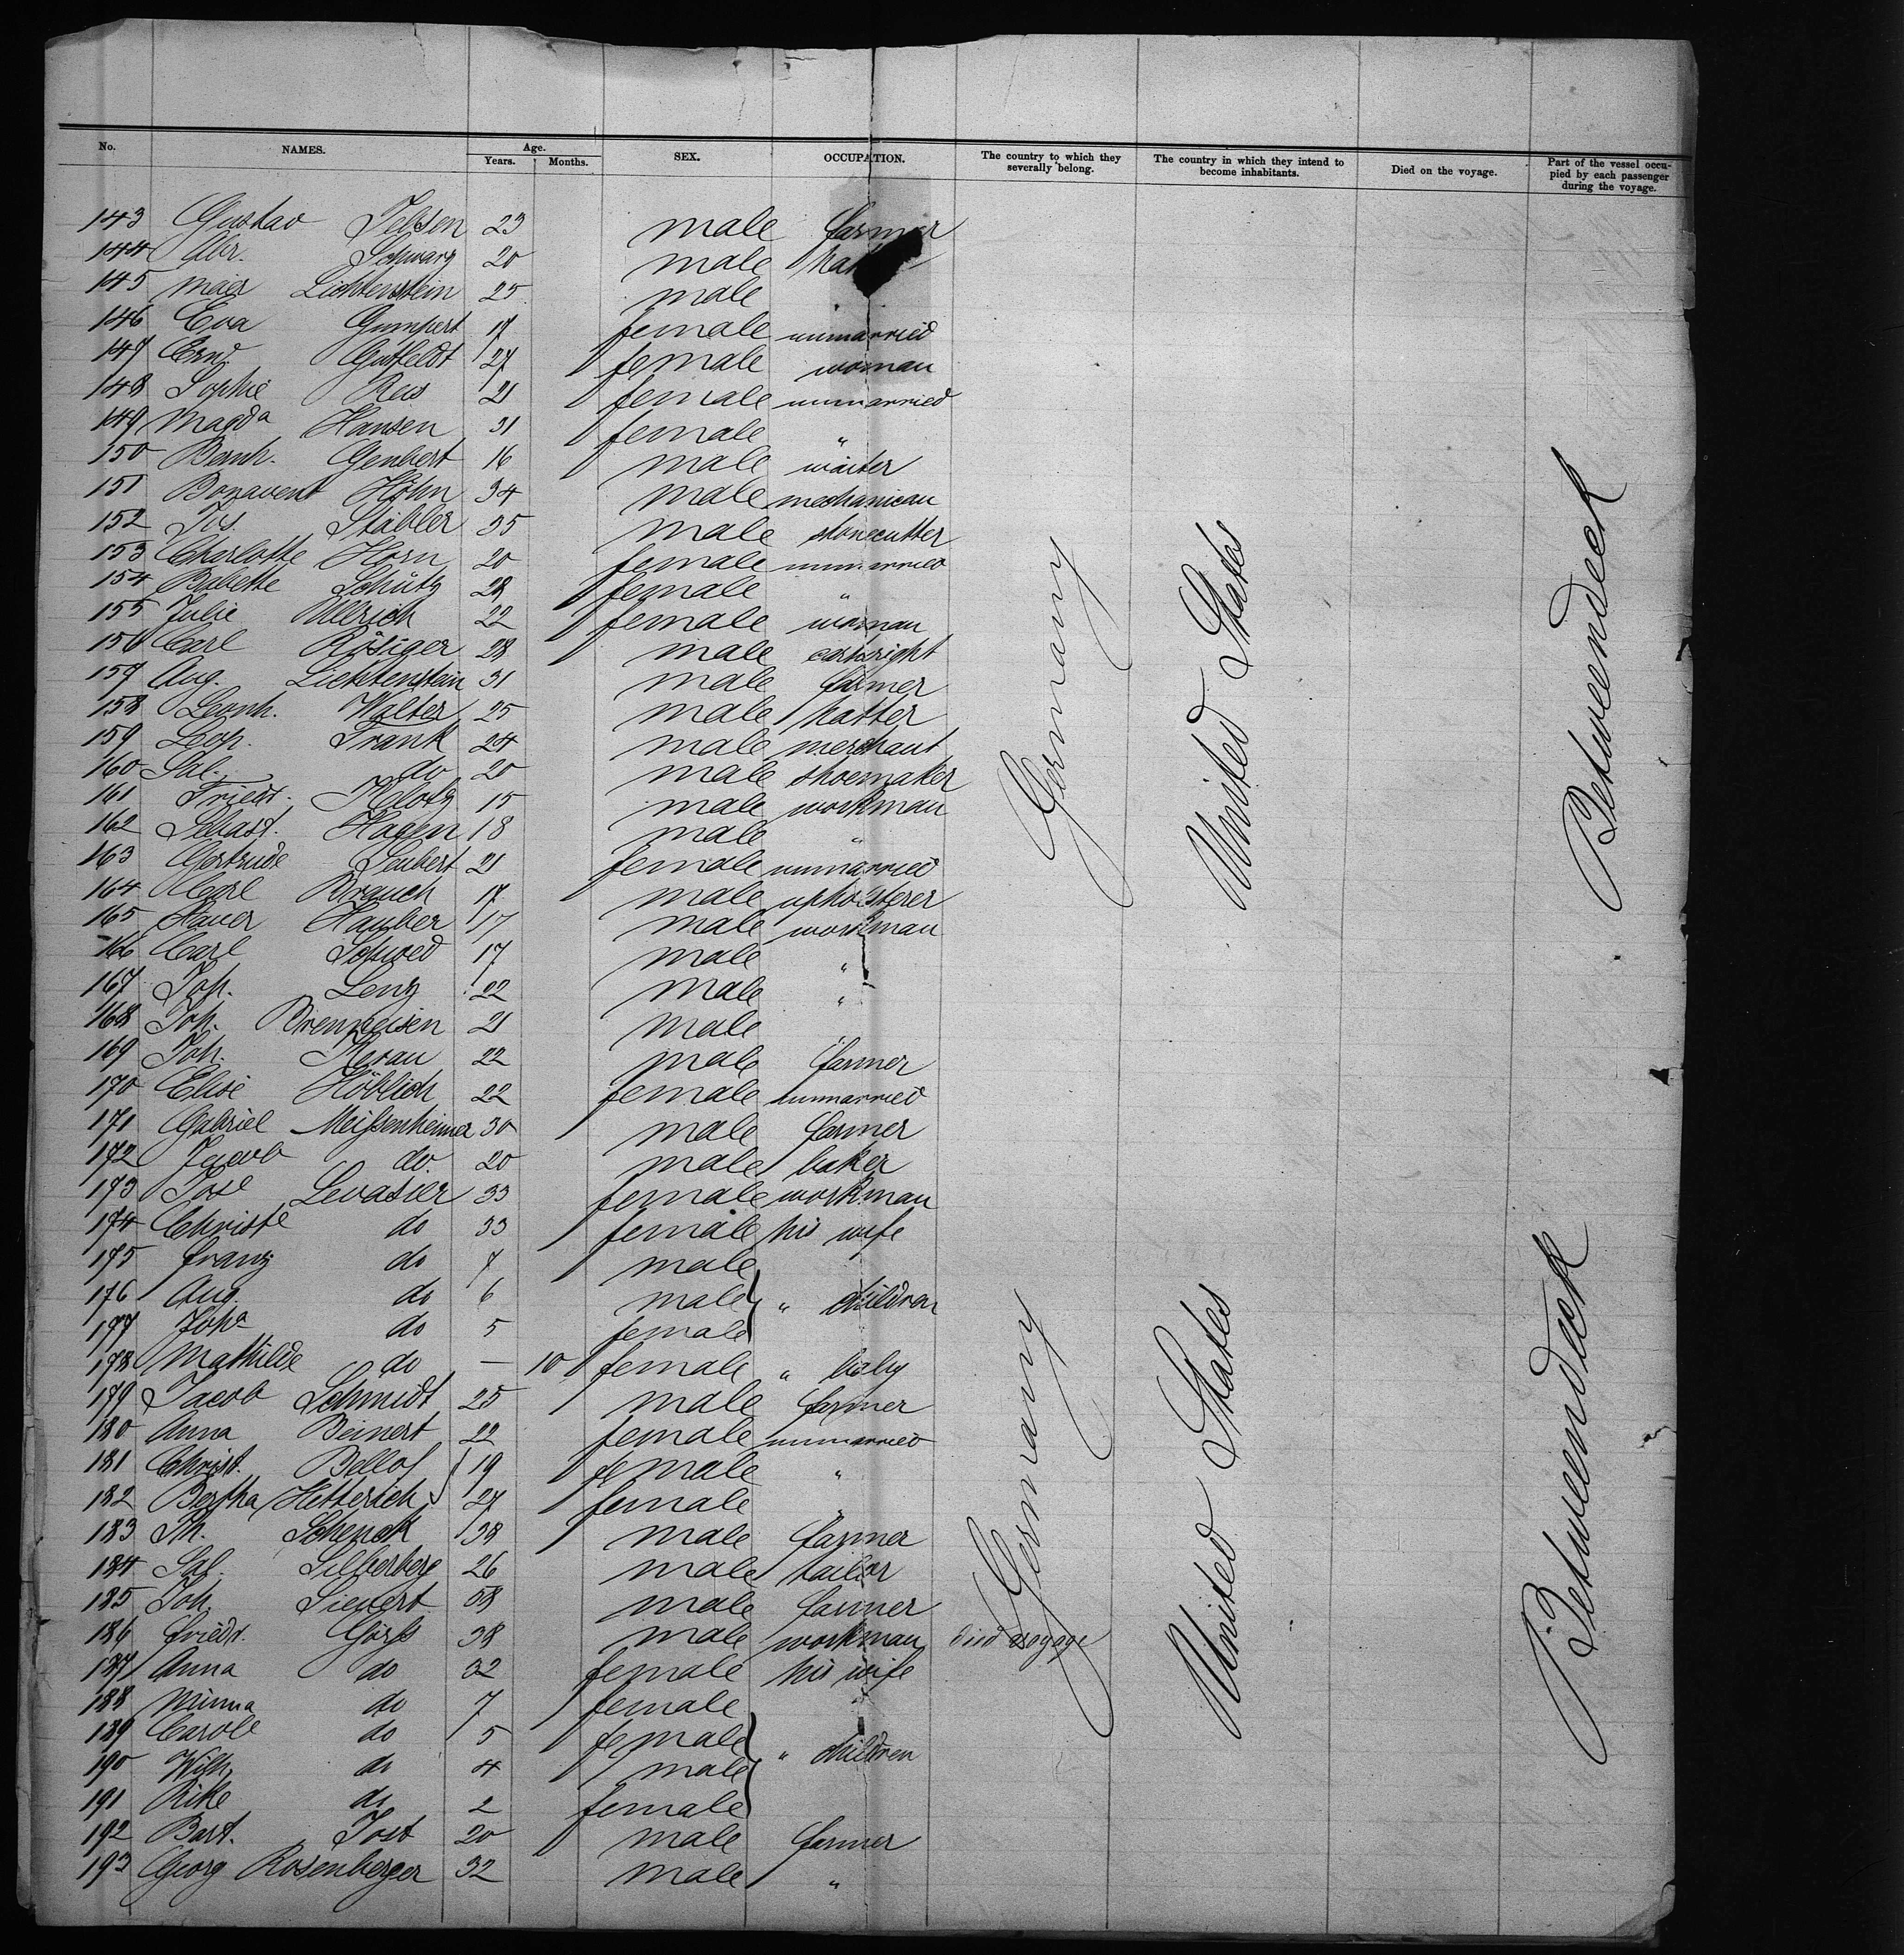 No. NAMES. Age. Years. Months. SEX. OCCUPATION. The country to which they severally belong. The country in which they intend to become inhabitants. Died on the voyage. Part of the vessel occupied by each passenger during the voyage.
143 Gustav Jebsen 23 male farmer
144 Abr. Schwarz 20 male
145 Meier Lichtenstein 25 male
146 Eva Gumpert 17 female unmarried
147 Gutfeldt 27 female woman
148 Sophie Reis 21 female unmarried
149 Magda Hansen 31 female "
150 Bernh. Genbert 16 male waiter
151 Bonavent Höhn 34 male mechanican
152 Jos. Stabler 35 male stonecutter
153 Charlotte Horn 20 female unmarried
154 Babette Schütz 28 female "
155 Julie Ullrich 22 female woman
156 Carl Rösiger 28 male cartwright
157 Aug. Lichtenstein 31 male farmer
158 Leonh. Walter 25 male hatter
159 Leop. Frank 24 male merchant
160 Sal. do 20 male shoemaker
161 Friedr. Klotz 15 male workman
162 Sebast. Hagen 18 male "
163 Gertrude Seubert 21 female unmarried
164 Carl Brauch 17 male upholsterer
165 Xaver Hauber 17 male workman
166 Carl Schwed 17 male "
167 Joh. Lenz 22 male "
168 Joh. Brenneisen 21 male
169 Joh. Kerau 22 male farmer
170 Elise Höblich 22 female unmarried
171 Gabriel Meissenheimer 30 male farmer
172 Jacob do. 20 male baker
173 Jose Levasier 33 female workman
174 Christe do 33 female his wife
175 Franz do 7 male
176 Aug. do 6 male " children
177 Joha do 5 female
178 Mathilde do — 10 female " baby
179 Jacob Schmidt 25 male farmer
180 Anna Beinert 22 female unmarried
181 Christ. Bellof 19 female "
182 Bertha Hetterich 27 female "
183 Ph. Schenck 38 male farmer
184 Sal. Silberberg 26 male tailor
185 Joh. Sievert 58 male farmer
186 Friedr. Görss 38 male workman died voyage
187 Anna do 32 female his wife
188 Minna do 7 female
189 Carole do 5 female
190 Wilh. do 4 male " children
191 Rike do 2 female
192 Bart. Jost 20 male farmer
193 Georg Rosenberger 32 male "
Germany
United States
Betweendeck
Germany
United States
Betweendeck